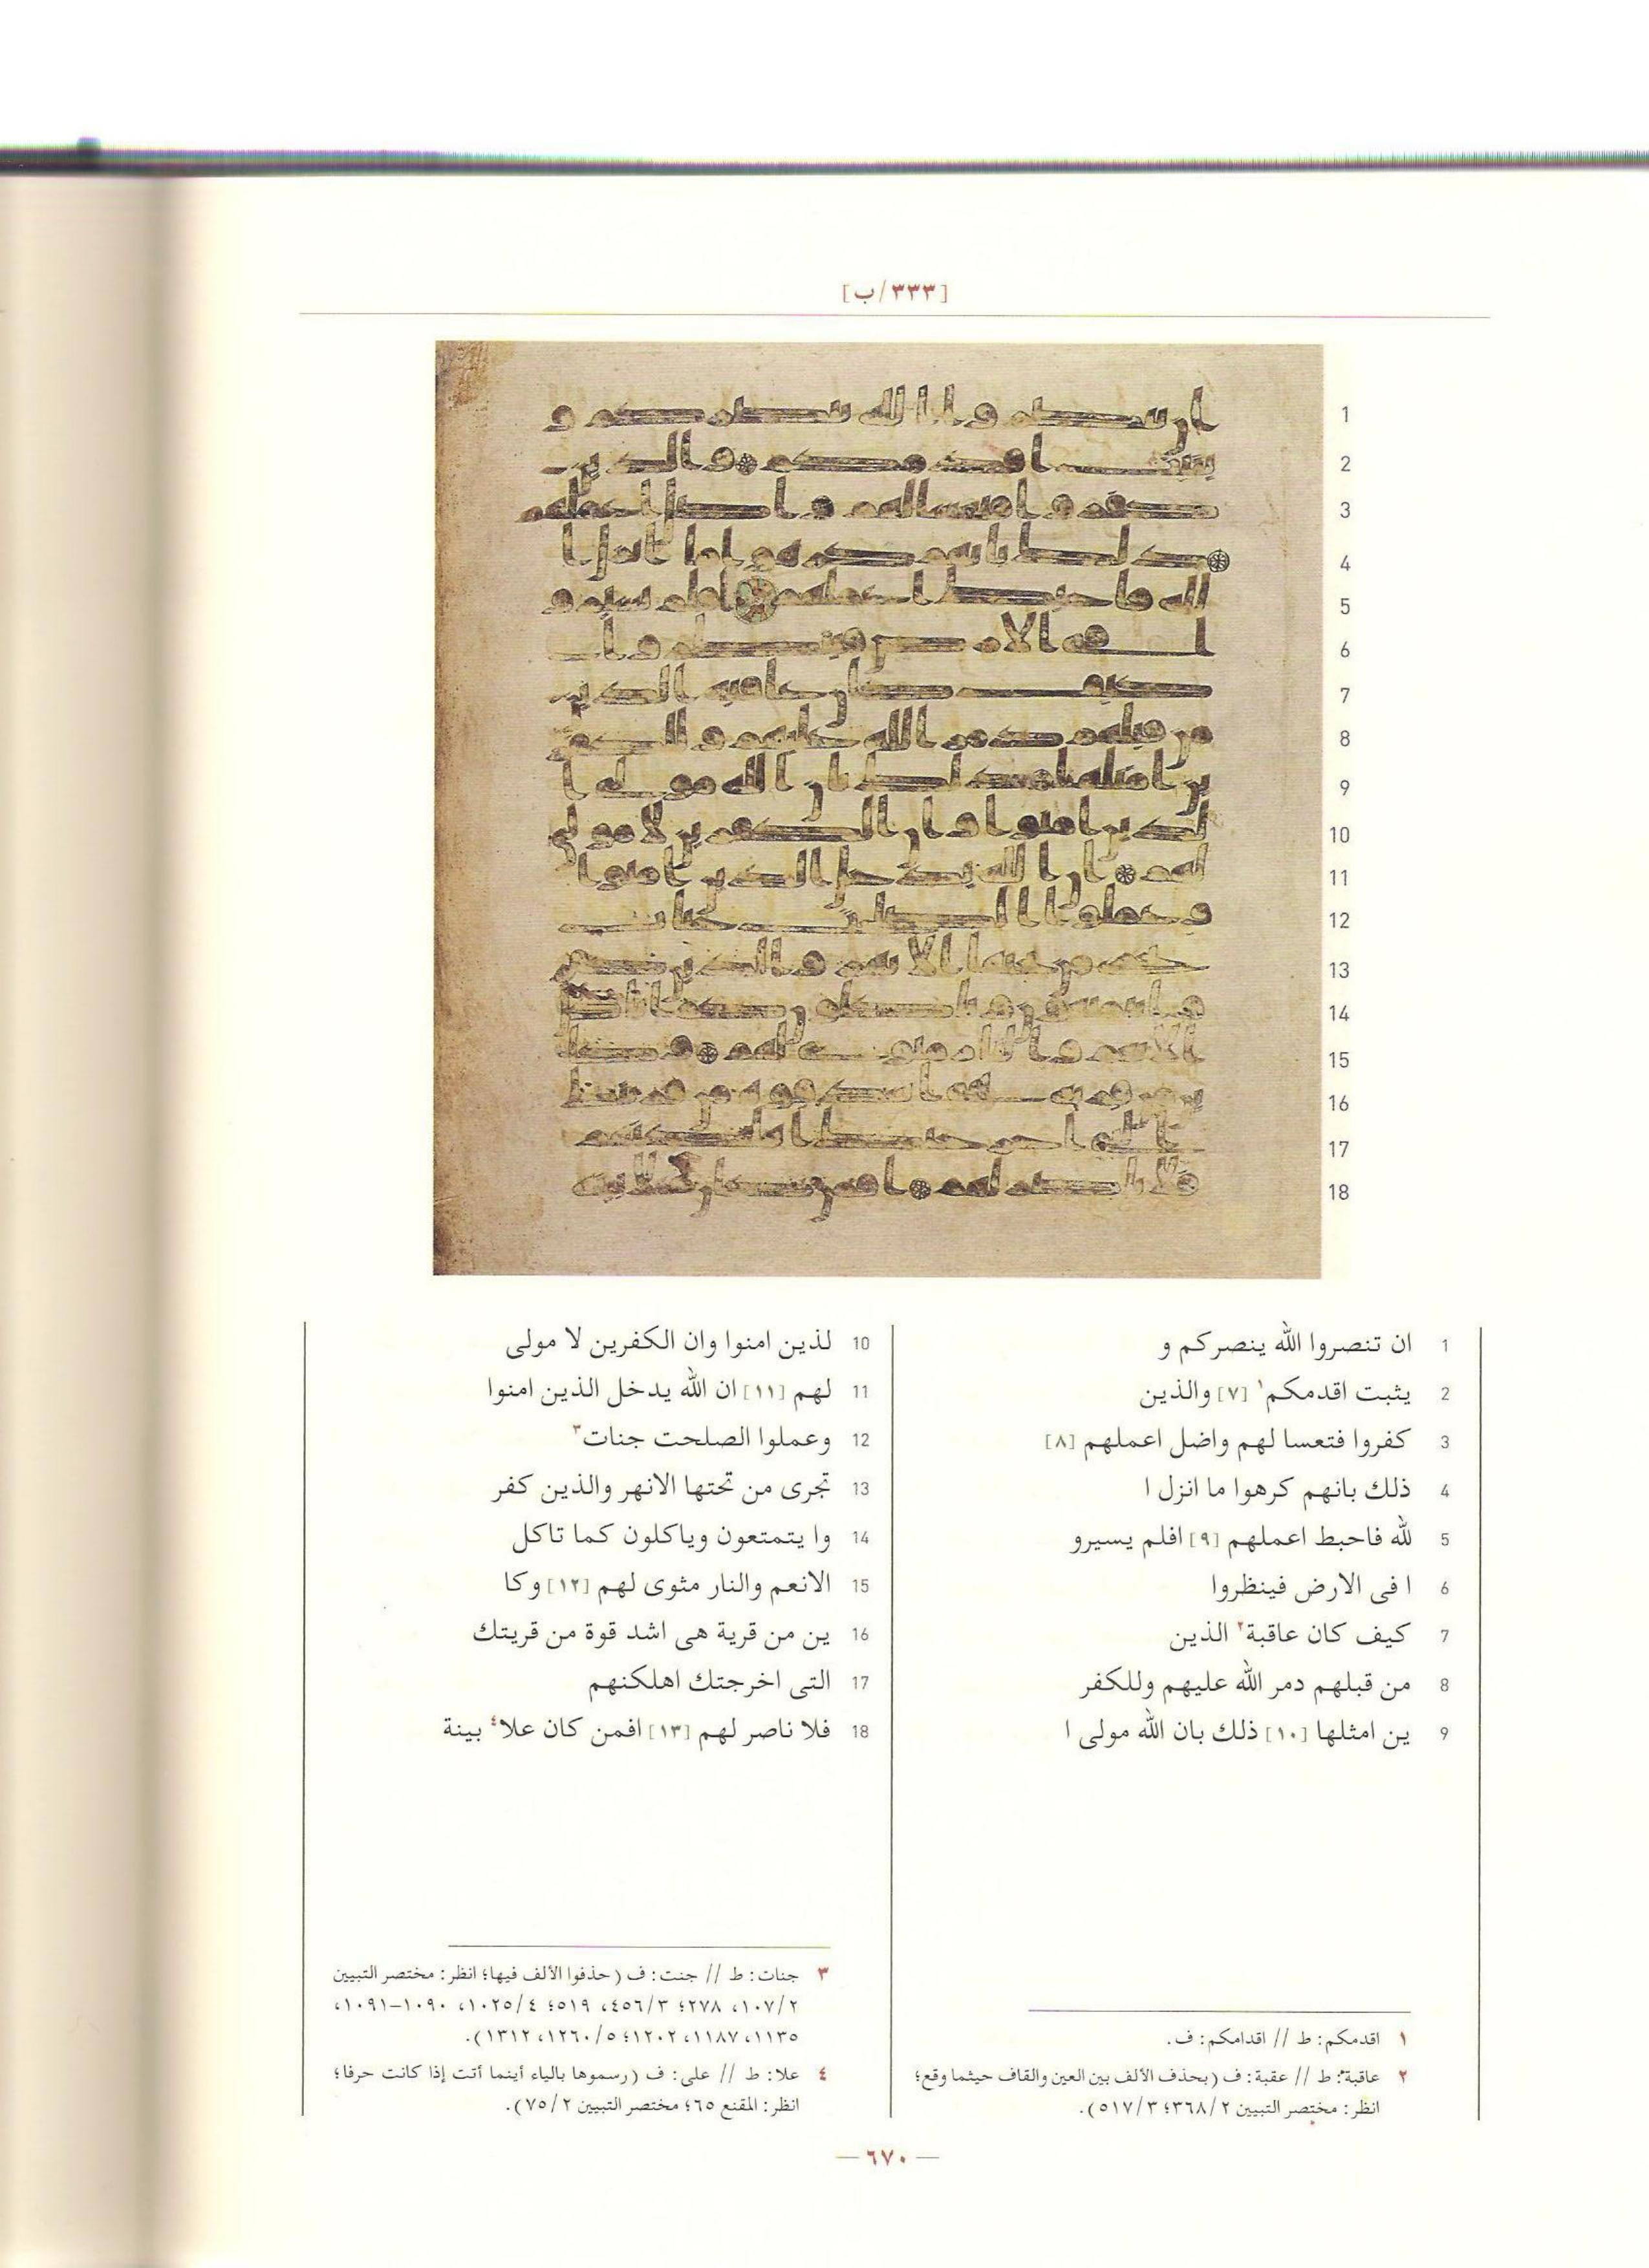 [٣٣٣/ب]
1 ان تنصروا الله ينصركم و
2 يثبت اقدمكم١ [٧] والذين
3 كفروا فتعسا لهم واضل اعملهم [٨]
4 ذلك بانهم كرهوا ما انزل ا
5 لله فاحبط اعملهم [٩] افلم يسيرو
6 ا فى الارض فينظروا
7 كيف كان عاقبة٢ الذين
8 من قبلهم دمر الله عليهم وللكفر
9 ين امثلها [١٠] ذلك بان الله مولى ا
10 لذين امنوا وان الكفرين لا مولى
11 لهم [١١] ان الله يدخل الذين امنوا
12 وعملوا الصلحت جنات٣
13 تجرى من تحتها الانهر والذين كفر
14 وا يتمتعون وياكلون كما تاكل
15 الانعم والنار مثوى لهم [١٢] وكا
16 ين من قرية هى اشد قوة من قريتك
17 التى اخرجتك اهلكنهم
18 فلا ناصر لهم [١٣] افمن كان علا٤ بينة
١ اقدمكم: ط // اقدامكم: ف.
٢ عاقبة: ط // عقبة: ف (بحذف الألف بين العين والقاف حيثما وقع؛
انظر: مختصر التبيين ٣٦٨/٢؛ ٥١٧/٣).
٣ جنات: ط // جنت: ف (حذفوا الألف فيها؛ انظر: مختصر التبيين
١٠٧/٢، ٢٧٨؛ ٤٥٦/٣، ٥١٩؛ ١٠٢٥/٤، ١٠٩٠–١٠٩١،
١١٣٥، ١١٨٧، ١٢٠٢؛ ١٢٦٠/٥، ١٣١٢).
٤ علا: ط // على: ف (رسموها بالياء أينما أتت إذا كانت حرفا؛
انظر: المقنع ٦٥؛ مختصر التبيين ٧٥/٢).
— ٦٧٠ —